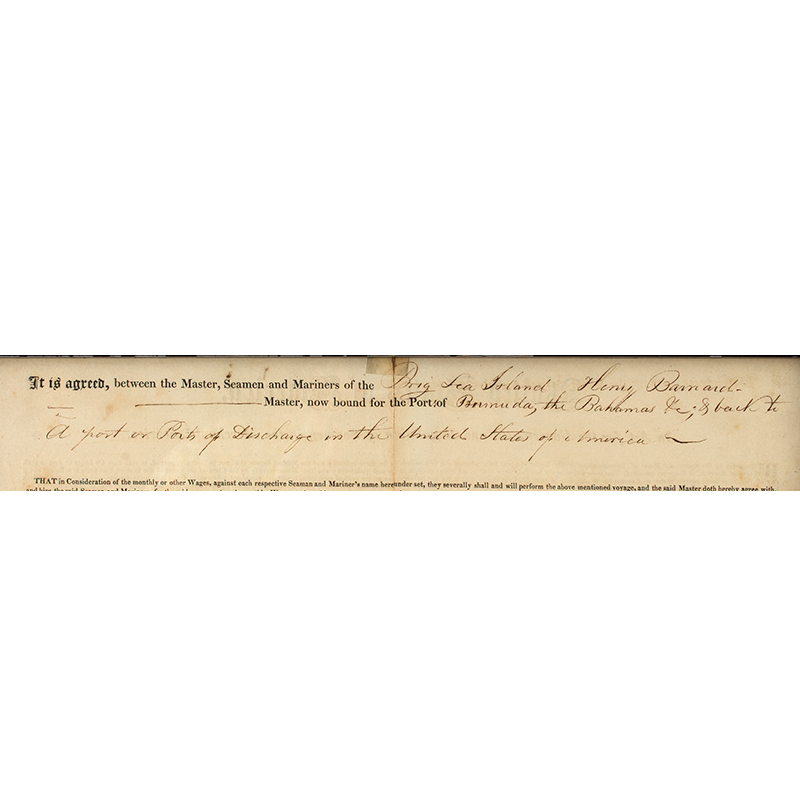 It is agreed, between the Master, Seamen and Mariners of the Brig Sea Island Henry Barnard
Master, now bound for the Port of Bermuda, the Bahamas &c; & back to
A port or Ports of Discharge in the United States of America
THAT in Consideration of the monthly or other Wages, against each respective Seaman and Mariner's name hereunder set, they severally shall and will perform the above mentioned voyage, and the said Master doth hereby agree with